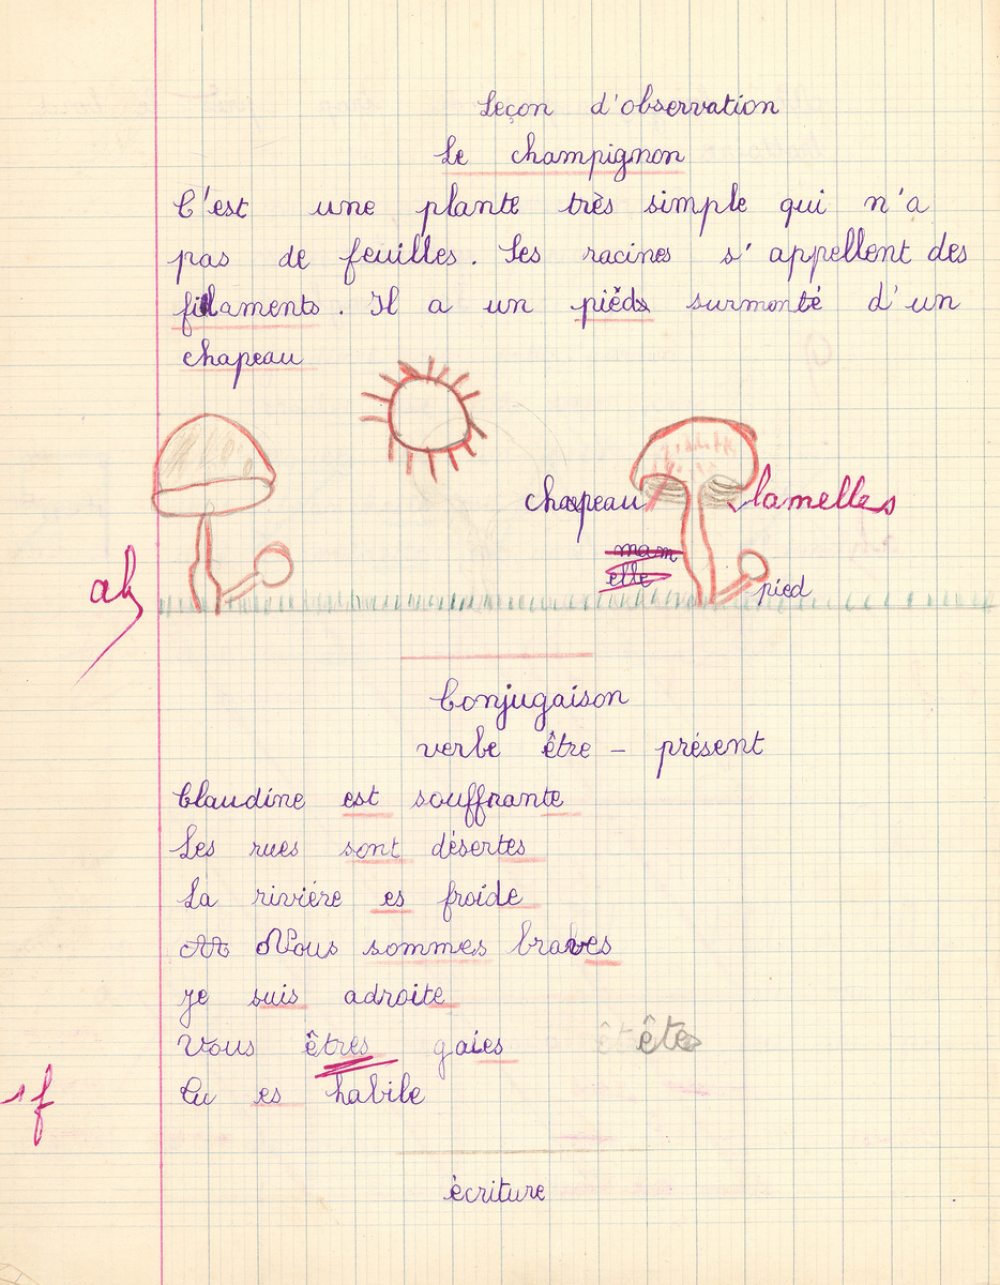 Leçon d'observation
Le champignon
C'est une plante très simple qui n'a
pas de feuilles. Ses racines s'appellent des
filaments. Il a un pieds surmonté d'un
chapeau
chapeau lamelles
mam
elle
pied
Conjugaison
verbe être - présent
Claudine est souffrante
Les rues sont désertes
La rivière es froide
Nous sommes braves
je suis adroite
Vous êtres gaies ête
1 f
Tu es habile
écriture